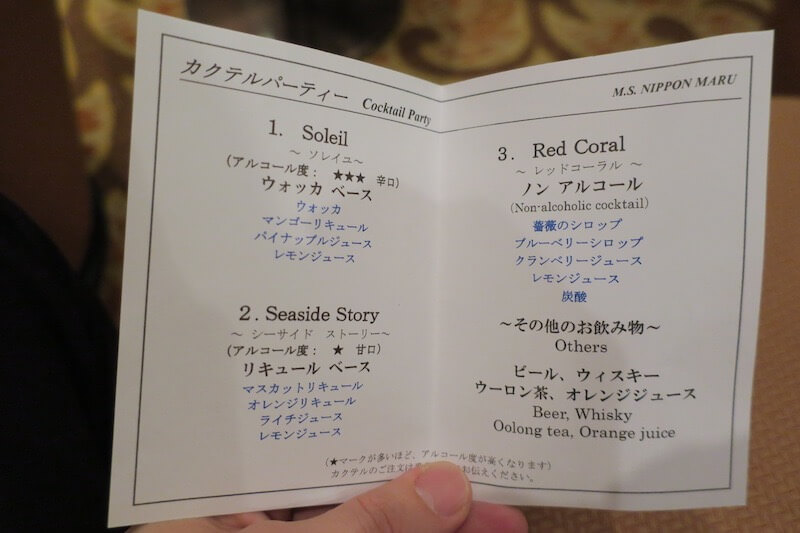 カクテルパーティー Cocktail Party
1. Soleil
～ ソレイユ～
(アルコール度： ★★★ 辛口)
ウォッカ ベース
ウォッカ
マンゴーリキュール
パイナップルジュース
レモンジュース
2. Seaside Story
～ シーサイド ストーリー～
(アルコール度： ★ 甘口)
リキュール ベース
マスカットリキュール
オレンジリキュール
ライチジュース
レモンジュース
M.S. NIPPON MARU
3. Red Coral
～ レッドコーラル ～
ノン アルコール
(Non-alcoholic cocktail)
薔薇のシロップ
ブルーベリーシロップ
クランベリージュース
レモンジュース
炭酸
～その他のお飲み物～
Others
ビール、ウィスキー
ウーロン茶、オレンジジュース
Beer, Whisky
Oolong tea, Orange juice
(★マークが多いほど、アルコール度が高くなります)
カクテルのご注文は お伝えください。